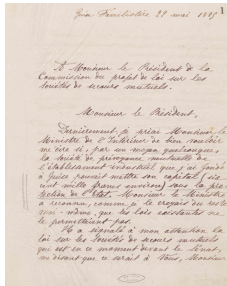 Guise Familistère 29 mai 1885
1
A Monsieur le Président de la
Commission du projet de loi sur les
Sociétés de secours mutuels.
Monsieur le Président,
Dernièrement je priai Monsieur le
Ministre de l'Intérieur de bien vouloir
me dire si, par un moyen quelconque,
la Société de prévoyance mutuelle de
l'établissement industriel que j'ai fondé
à Guise pouvait mettre son capital (six
cent mille francs environ) sous la pro-
tection de l'Etat. Monsieur le Ministre
a reconnu, comme je le croyais du reste
moi-même, que les lois existantes ne
le permettaient pas.
Il a signalé à mon attention la
loi sur les Sociétés de secours mutuels
qui est en ce moment devant le Sénat,
me disant que ce serait à Vous, Monsieur